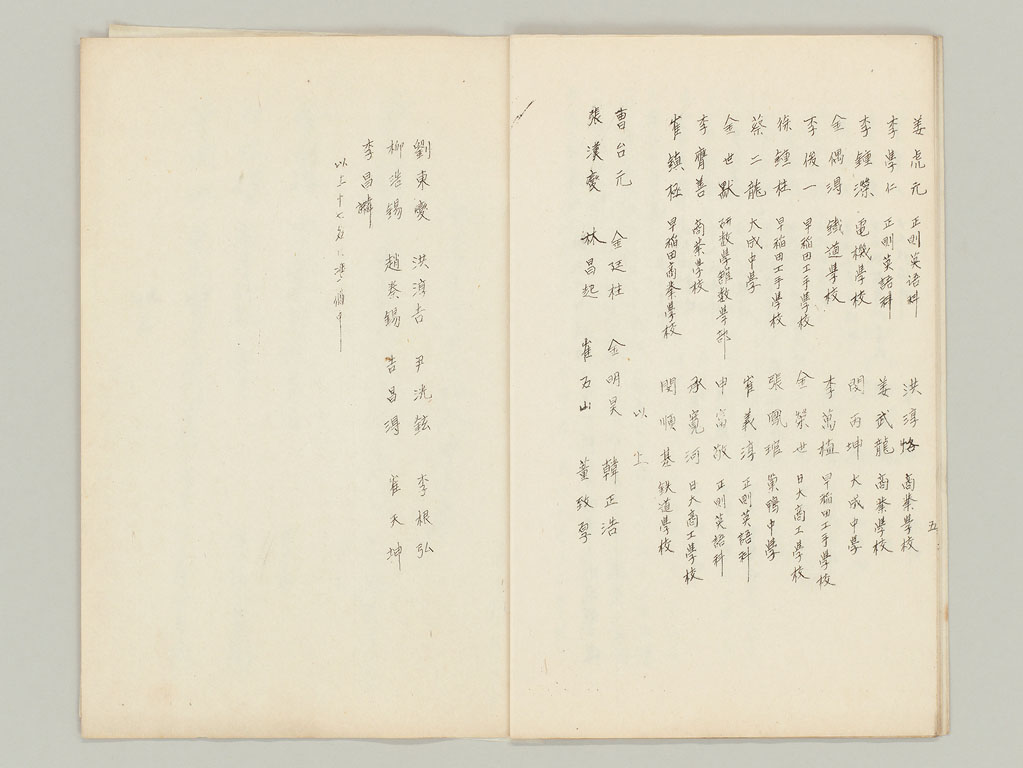 姜虎元 正則英語科
李學仁 正則英語科
李鍾濚 電機學校
金偶得 鐵道學校
李俊一 早稲田工手學校
徐鍾柱 早稲田工手學校
蔡二龍 大成中學
金世默 研数學館数學部
李齊善 商業學校
崔鎮極 早稲田高等學校
洪淳恪 商業學校
姜武龍 商業學校
閔丙坤 大成中學
李萬植 早稲田工手學校
金榮世 日大商工學校
張珮琯 巣鴨中學
崔義淳 正則英語科
申富敬 正則英語科
承寛河 日大商工學校
閔順基 鉄道學校
以上
曹台元 金廷柱 金明昊 韓正浩
張漢燮 林昌起 崔石山 董致孚
五
劉東燮 洪淳吉 尹洸鉉 李根弘
柳浩錫 趙泰錫 吉昌得 崔天坤
李昌
以上十七名